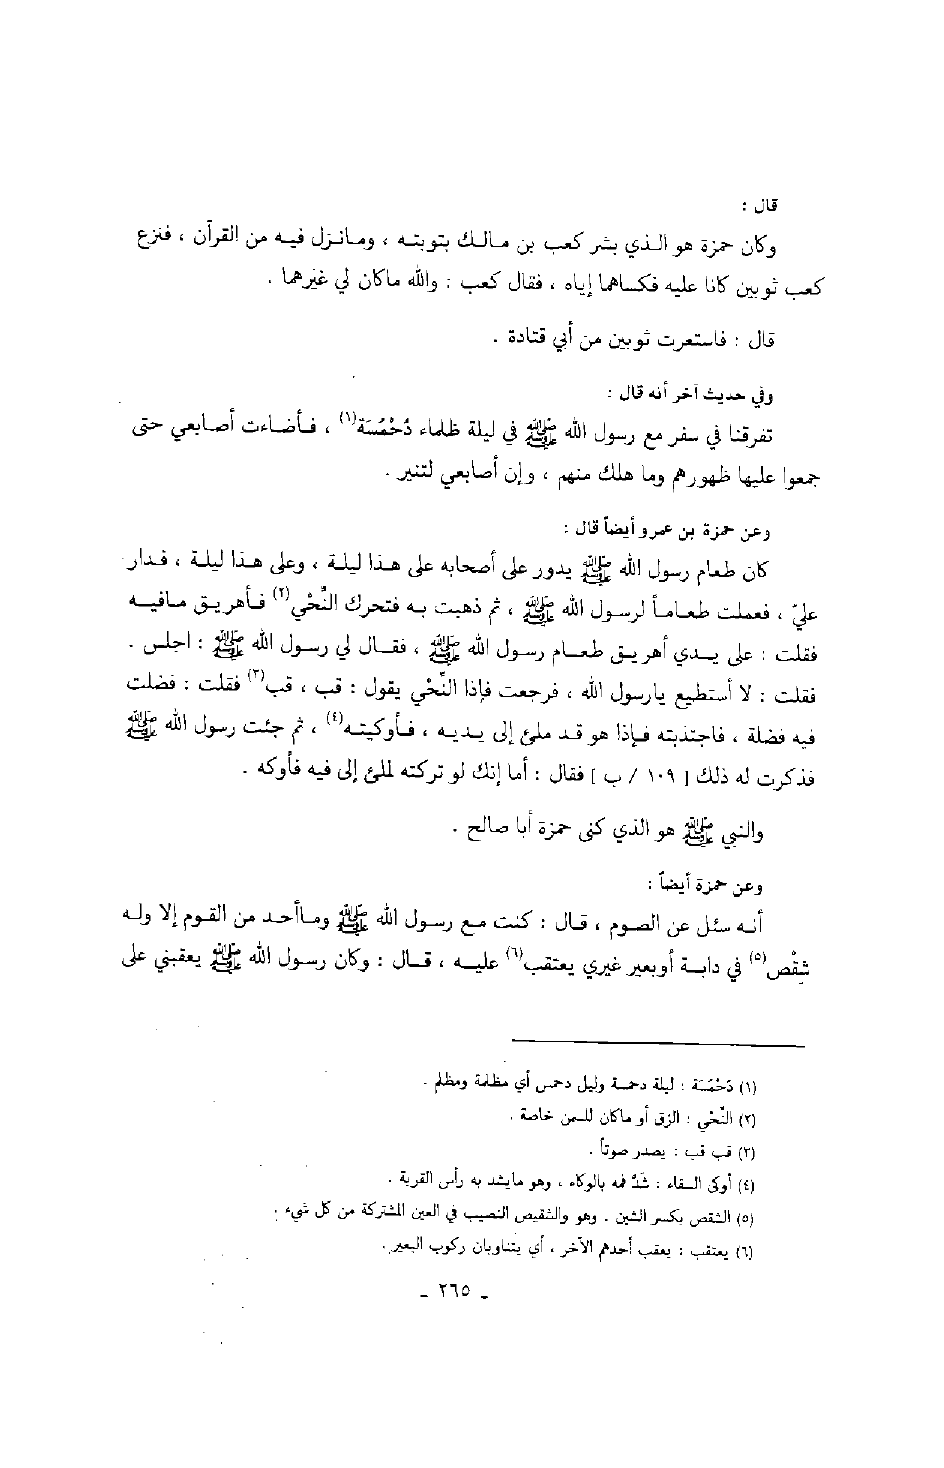 قال :
وكان حمزة هو الذي بشر كعب بن مالك بتوبته ، ومانزل فيه من القرآن ، فنزع
كعب ثوبين كانا عليه فكساهما إياه ، فقال كعب : والله ماكان لي غيرهما .
قال : فاستعرت ثوبين من أبي قتادة .
وفي حديث آخر أنه قال :
تفرقنا في سفر مع رسول الله ﷺ في ليلة ظلماء دُحْمُسَة(١) ، فأضاءت أصابعي حتى
جمعوا عليها ظهورهم وما هلك منهم ، وإن أصابعي لتنير .
وعن حمزة بن عمرو أيضاً قال :
كان طعام رسول الله ﷺ يدور على أصحابه على هذا ليلة ، وعلى هذا ليلة ، فدار
عليّ ، فعملت طعاماً لرسول الله ﷺ ، ثم ذهبت به فتحرك النِّحْي(٢) فأهريق مافيه
فقلت : على يدي أهريق طعام رسول الله ﷺ ، فقال لي رسول الله ﷺ : اجلس .
فقلت : لا أستطيع يارسول الله ، فرجعت فإذا النِّحْي يقول : قب ، قب(٣) فقلت : فضلت
فيه فضلة ، فاجتذبته فإذا هو قد ملئ إلى يديه ، فأوكيته(٤) ، ثم جئت رسول الله ﷺ
فذكرت له ذلك [ ١٠٩ / ب ] فقال : أما إنك لو تركته لملئ إلى فيه فأوكه .
والنبي ﷺ هو الذي كنى حمزة أبا صالح .
وعن حمزة أيضاً :
أنه سئل عن الصوم ، قال : كنت مع رسول الله ﷺ وماأحد من القوم إلا وله
شِقْص(٥) في دابة أوبعير غيري يعتقب(٦) عليه ، قال : وكان رسول الله ﷺ يعقبني على
(١) دُحْمُسَة : ليلة دحمسة وليل دحمس أي مظلمة ومظلم .
(٢) النِّحْي : الزق أو ماكان للسمن خاصة .
(٣) قب قب : يصدر صوتاً .
(٤) أوكى السقاء : شَدَّ فمه بالوكاء ، وهو مايشد به رأس القربة .
(٥) الشقص بكسر الشين . وهو والشقيص النصيب في العين المشتركة من كل شيء .
(٦) يعتقب : يعقب أحدهم الآخر ، أي يتناوبان ركوب البعير .
ـ ٢٦٥ ـ